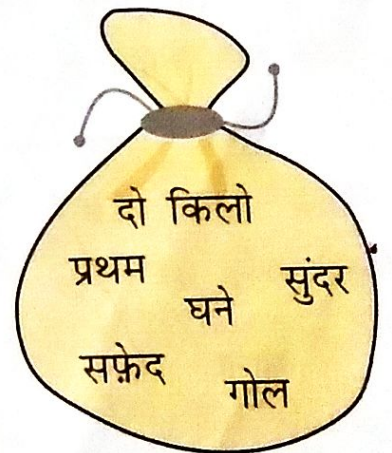 दो किलो
प्रथम
सुंदर
घने
सफ़ेद
गोल